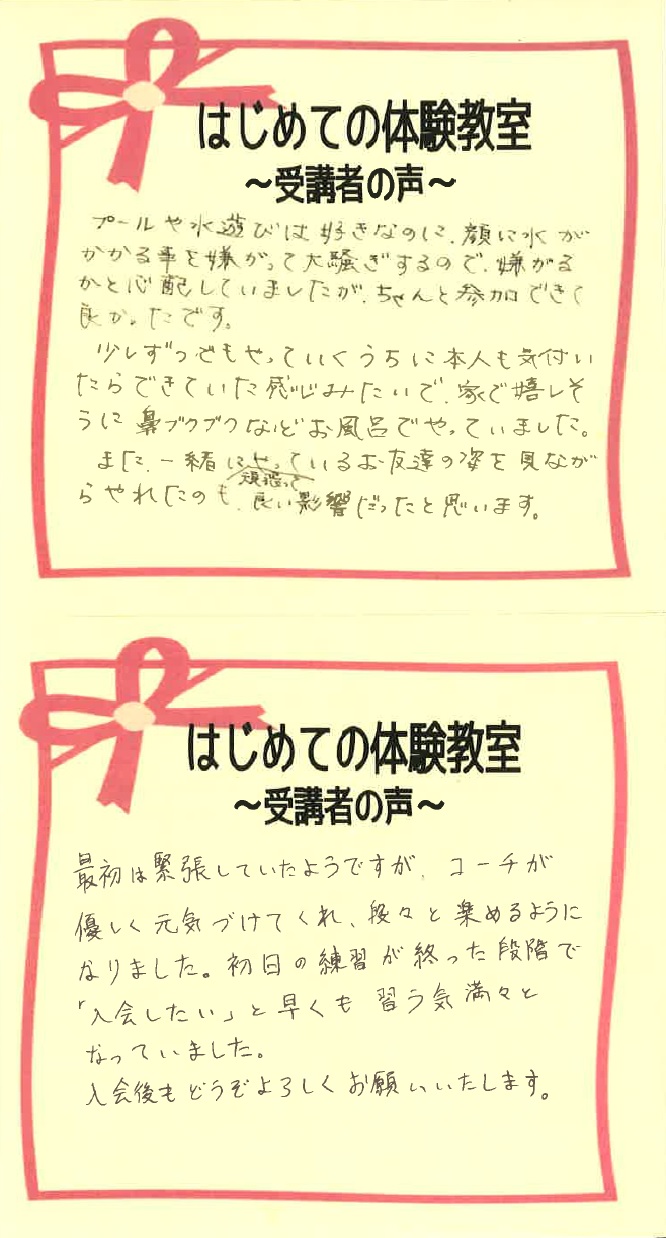 はじめての体験教室
～受講者の声～
プールや水遊びは好きなのに、顔に水が
かかる事を嫌がって大騒ぎするので、嫌がる
かと心配していましたが、ちゃんと参加できて
良かったです。
少しずつでもやっていくうちに本人も気付い
たらできていた感じみたいで、家で嬉しそ
うに鼻ブクブクなどお風呂でやっていました。
また、一緒にやっているお友達の姿を見なが
頑張って
らやれたのも、良い影響だったと思います。
はじめての体験教室
～受講者の声～
最初は緊張していたようですが、コーチが
優しく元気づけてくれ、段々と楽めるように
なりました。初日の練習が終った段階で
「入会したい」と早くも習う気満々と
なっていました。
入会後もどうぞよろしくお願いいたします。